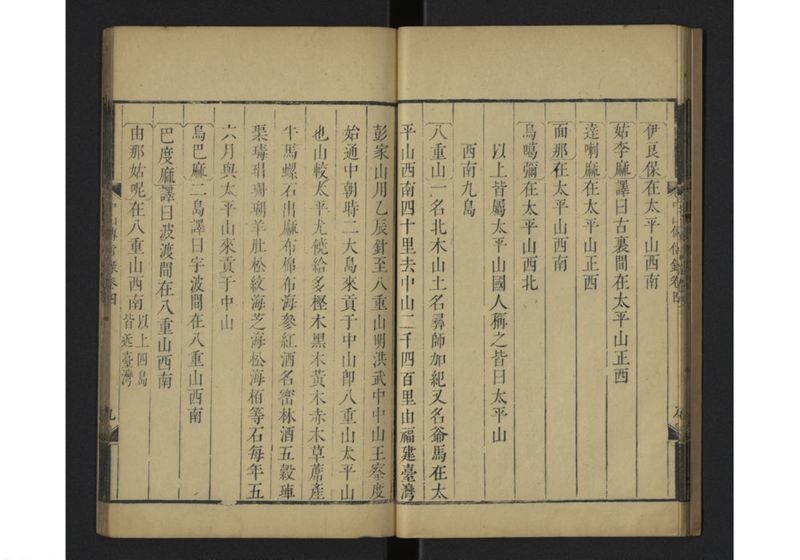 伊良保在太平山西南
姑李麻譯曰古裏間在太平山正西
達喇麻在太平山正西
面那在太平山西南
烏噶彌在太平山西北
以上皆屬太平山國人稱之皆曰太平山
西南九島
八重山一名北木山土名彝師加紀又名爺馬在太
平山西南四十里去中山二千四百里由福建臺灣
彭家山用乙辰針至八重山明洪武中中山王察度
始通中朝時二大島來貢于中山卽八重山太平山
也山較太平尤饒給多樫木黑木黃木赤木草蓆產
牛馬螺石出麻布棉布海參紅酒名密林酒五穀硨
磲瑇瑁珊瑚羊肚松紋海芝海松海栢等石每年五
六月與太平山來貢于中山
烏巴麻二島譯曰宇波間在八重山西南
巴度麻譯曰波渡間在八重山西南
由那姑呢在八重山西南以上四島皆近臺灣
中山傳信錄卷四
九